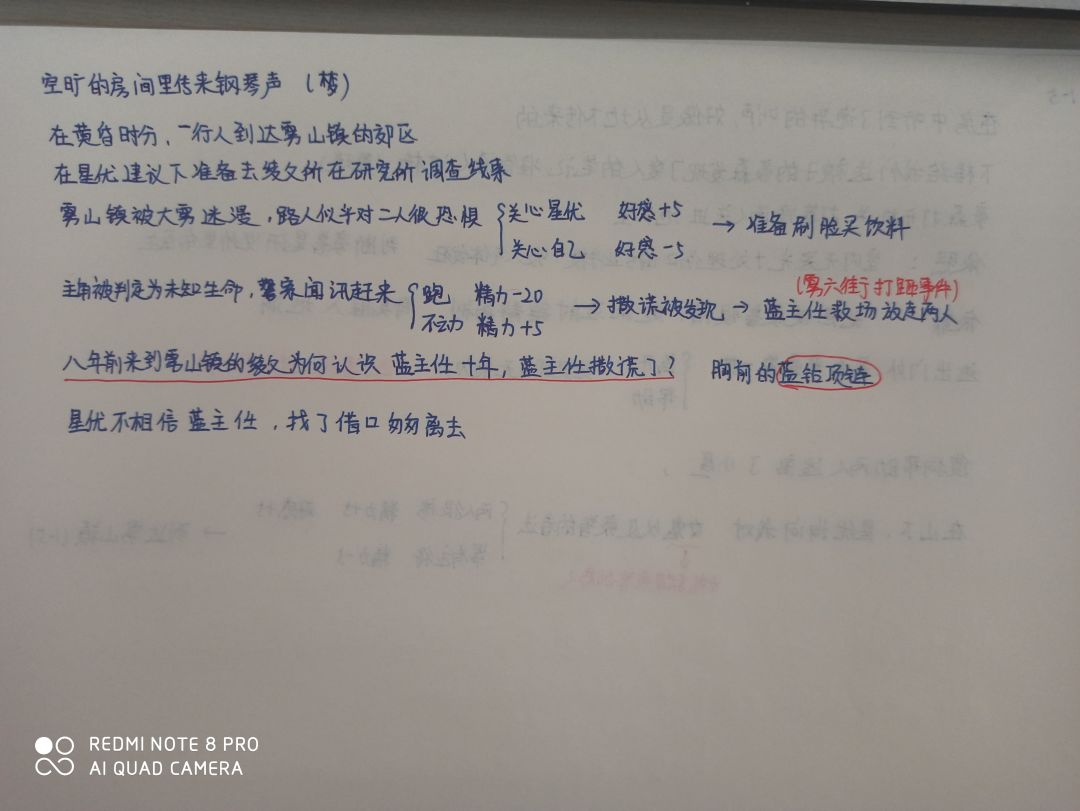 空旷的房间里传来钢琴声 (梦)
在黄昏时分，一行人到达雾山镇的郊区
在星优建议下准备去继父所在研究所调查线索
雾山镇被大雾迷漫，路人似乎对二人很恐惧 { 关心星优 好感+5 → 准备刷脸买饮料
关心自己 好感-5
主角被判定为未知生命，警察闻讯赶来 { 跑 精力-20 → 撒谎被发现 → 蓝主任救场放走两人
不动 精力+5
(雾六街打 事件)
八年前来到雾山镇的继父为何认识 蓝主任十年，蓝主任撒谎了? 胸前的蓝钻项链
星优不相信蓝主任，找了借口匆匆离去
REDMI NOTE 8 PRO
AI QUAD CAMERA